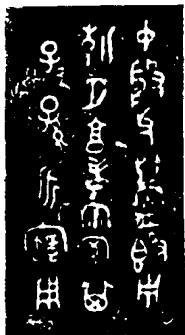 中殷父鑄𣪘用
朝夕亯孝宗室其
子＝孫＝永寶用